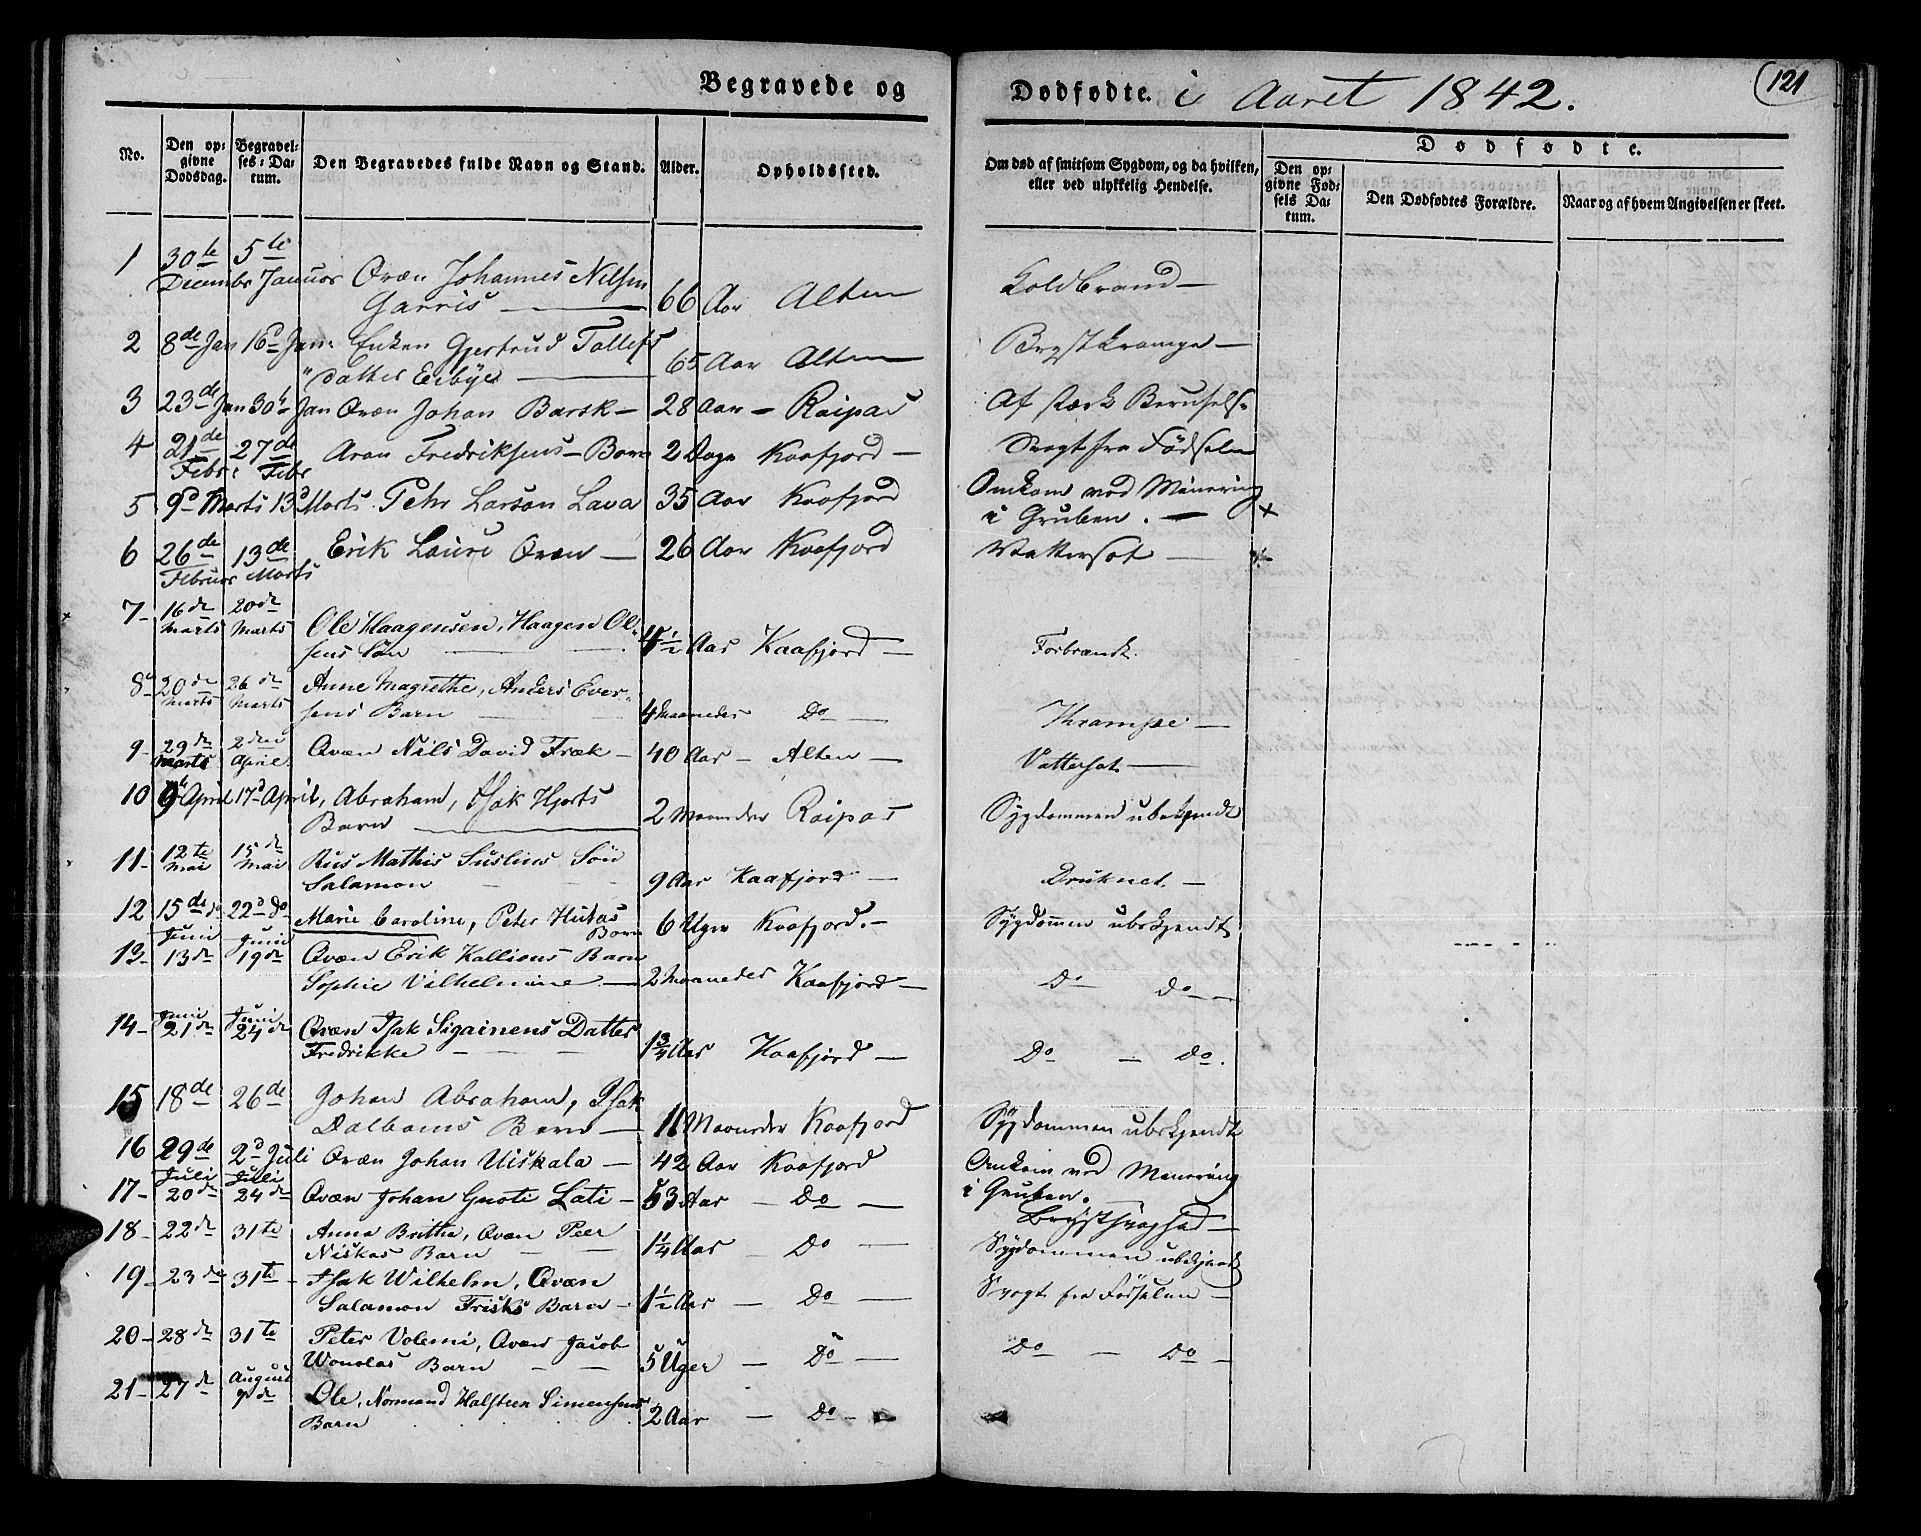 Begravede og Dødfødte. i Aaret 1842. 121
No. Den opgivne Dødsdag. Begravelses-Datum. Den Begravedes fulde Navn og Stand. Alder. Opholdssted. Om død af smitsom Sygdom, og da hvilken, eller ved ulykkelig Hendelse. Dødfødte. Den opgivne Fødsels Datum. Den Dødfødtes Forældre. Naar og af hvem Angivelsen er skeet.
1 30te 5te
Decembr Januar Qvæn Johannes Nilsen
Garris — 66 Aar Alten Koldbrand —
2 8de Jan 16d Jan: Enken Gjertrud Tollefs
"datter Eibye — 65 Aar Alten Brystkrampe —
3 23de Jan 30te Jan Qvæn Johan Barsk — 28 Aar — Raipas Af stærk Beruselse
4 21de 27de
Febr: Febr Aron Fredriksens — Barn 2 Dage Kaafjord — Svagt fra Fødselen
5 9d Marts 13d Marts. Pehr Larson Lava 35 Aar Kaafjord Omkom ved Minering
i Gruben. — x
6 26de 13de Erik Lauri Qvæn — 26 Aar Kaafjord Vattersot —
Februar Marts
7- 16de 20de
Marts Marts Ole Haagensen, Haagen Ol-
sens Søn — 4 1/2 Aar Kaafjord — Forbrændt.
8- 20de 26de Anne Magrethe, Anders Ever-
Marts Marts sens Barn — 4 Maaneder Do — Krampe —
9- 29de 2den Qvæn Nils David Fræk — 40 Aar — Alten — Vattersot —
Marts April
10 9de April 17d April, Abraham, Isak Hjorts
Barn — 2 Maaneder Raipas Sygdommen ubekjendt
11- 12te 15de Rus Mathis Suslins Søn
Mai Mai Salamon — 9 Aar Kaafjord — Druknet. —
12 15de do 22d do Marie Caroline, Peter Hutas
Barn 6 Uger Kaafjord. — Sygdommen ubekjendt
Juni Juni
13- 13de 19de Qvæn Erik Kallions Barn
Sophie Vilhelmine — 2 Maaneder Kaafjord — Do Do —
Juni Juni
14- 21de 24de Qvæn Isak Sigainens Datter
Fredrikke — 1 3/4 Aar Kaafjord — Do — do.
15 18de 26de Johan Abraham, Isak
Dalboms Barn — 11 Maaneder Kaafjord Sygdommen ubekjendt
16 29de 2d Juli Qvæn Johan Uiskala — 42 Aar Kaafjord Omkom ved Minering
i Gruben.
Juli Juli
17- 20de 24de Qvæn Johan Gnoti Lati — 53 Aar — Do — Brystsvaghed —
18- 22de 31te Anna Britha, Qvæn Peer
Niskas Barn — 1 1/4 Aar — Do — Sygdommen ubekjendt
19- 23de 31te Isak Wilhelm, Qvæn
Salamon Frisks Barn — 1 1/2 Aar — Do — Svagt fra Fødselen —
20- 28de 31te Peter Volemi, Qvæn Jacob
Wonolas Barn — 5 Uger — Do — Do — Do —
August
21- 27de 7de Ole, Normand Halsteen Simensens
Barn 2 Aar — Do —